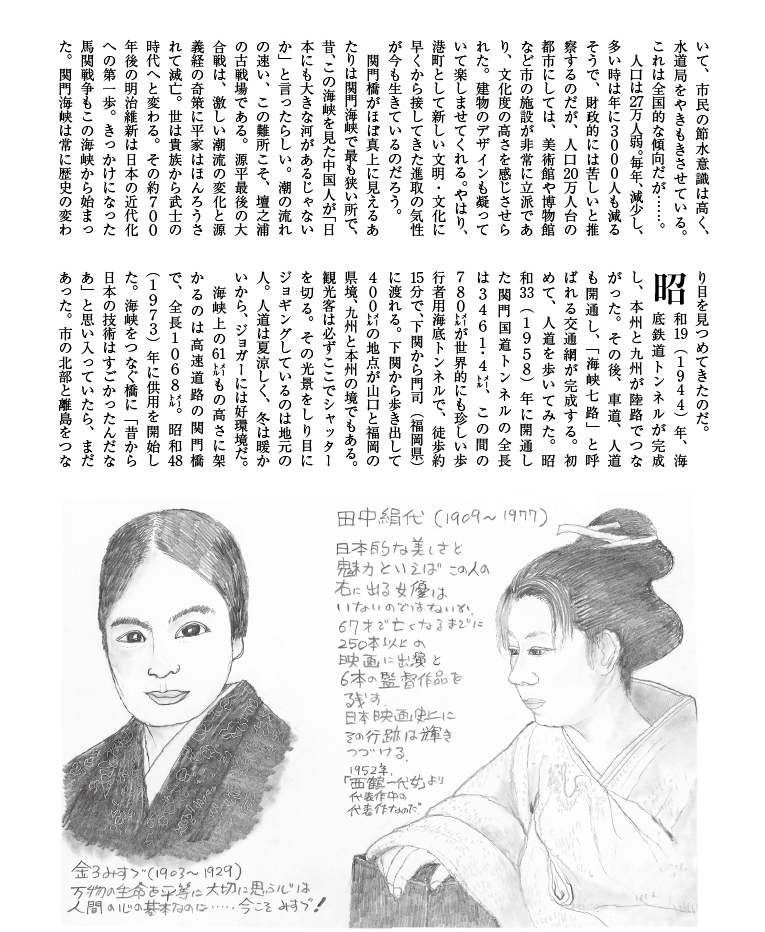 いて、市民の節水意識は高く、
水道局をやきもきさせている。
これは全国的な傾向だが……。
人口は27万人弱。毎年、減少し、
多い時は年に3000人も減る
そうで、財政的には苦しいと推
察するのだが、人口20万人台の
都市にしては、美術館や博物館
など市の施設が非常に立派であ
り、文化度の高さを感じさせら
れた。建物のデザインも凝って
いて楽しませてくれる。やはり、
港町として新しい文明・文化に
早くから接してきた進取の気性
が今も生きているのだろう。
関門橋がほぼ真上に見えるあ
たりは関門海峡で最も狭い所で、
昔、この海峡を見た中国人が「日
本にも大きな河があるじゃない
か」と言ったらしい。潮の流れ
の速い、この難所こそ、壇之浦
の古戦場である。源平最後の大
合戦は、激しい潮流の変化と源
義経の奇策に平家はほんろうさ
れて滅亡。世は貴族から武士の
時代へと変わる。その約700
年後の明治維新は日本の近代化
への第一歩。きっかけになった
馬関戦争もこの海峡から始まっ
た。関門海峡は常に歴史の変わ
り目を見つめてきたのだ。
昭和19(1944)年、海
底鉄道トンネルが完成
し、本州と九州が陸路でつな
がった。その後、車道、人道
も開通し、「海峡七路」と呼
ばれる交通網が完成する。初
めて、人道を歩いてみた。昭
和33(1958)年に開通し
た関門国道トンネルの全長
は3461・4㍍、この間の
780㍍が世界的にも珍しい歩
行者用海底トンネルで、徒歩約
15分で、下関から門司(福岡県)
に渡れる。下関から歩き出して
400㍍の地点が山口と福岡の
県境、九州と本州の境でもある。
観光客は必ずここでシャッター
を切る。その光景をしり目に
ジョギングしているのは地元の
人。人道は夏涼しく、冬は暖か
いから、ジョガーには好環境だ。
海峡上の61㍍もの高さに架
かるのは高速道路の関門橋
で、全長1068㍍。昭和48
(1973)年に供用を開始し
た。海峡をつなぐ橋に「昔から
日本の技術はすごかったんだな
あ」と思い入っていたら、まだ
あった。市の北部と離島をつな
田中絹代(1909〜1977)
日本的な美しさと
魅力といえばこの人の
右に出る女優は
いないのではないか.
67才で亡くなるまでに
250本以上の
映画に出演と
6本の監督作品を
残す.
日本映画史上に
その行跡は輝き
つづける.
1952年.
「西鶴一代女」より
代表作中の
代表作なのだ.
金子みすゞ(1903〜1929)
万物の生命を平等に大切に思う心は
人間の心の基本なのに……今こそみすゞ!